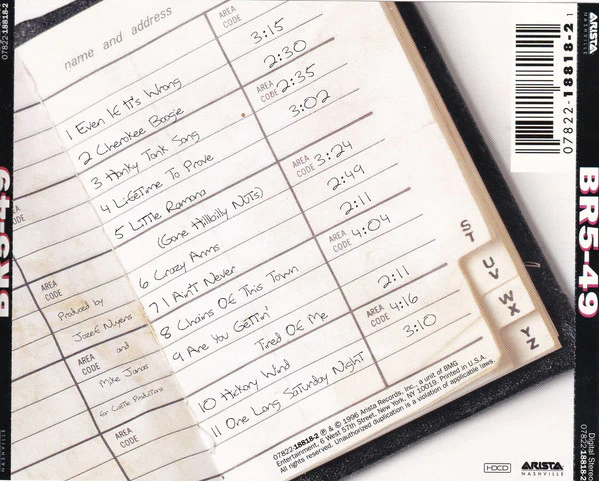 name and address
AREA CODE
1 Even If It's Wrong 3:15
2 Cherokee Boogie 2:30
3 Honky Tonk Song AREA CODE 2:35
4 LifeTime To Prove 3:02
5 Little Ramona
(Gone Hillbilly Nuts) AREA CODE 3:24
6 Crazy Arms 2:49
7 I Ain't Never 2:11
8 Chains Of This Town AREA CODE 4:04
9 Are You Gettin'
Tired Of Me 2:11
10 Hickory Wind AREA CODE 4:16
11 One Long Saturday Night 3:10
AREA CODE
AREA CODE
Produced by
Jozef Nuyens
AREA CODE
and
Mike Janas
for Castle Productions
AREA CODE
ST
UV
WX
YZ
07822-18818-2 ℗ & © 1996 Arista Records, Inc., a unit of BMG
Entertainment, 6 West 57th Street, New York, NY 10019. Printed in U.S.A.
All rights reserved. Unauthorized duplication is a violation of applicable laws.
HDCD
ARISTA
NASHVILLE
07822-18818-2 1
07822-18818-2
BR5-49
NASHVILLE
ARISTA
NASHVILLE
BR5-49
Digital Stereo
07822-18818-2